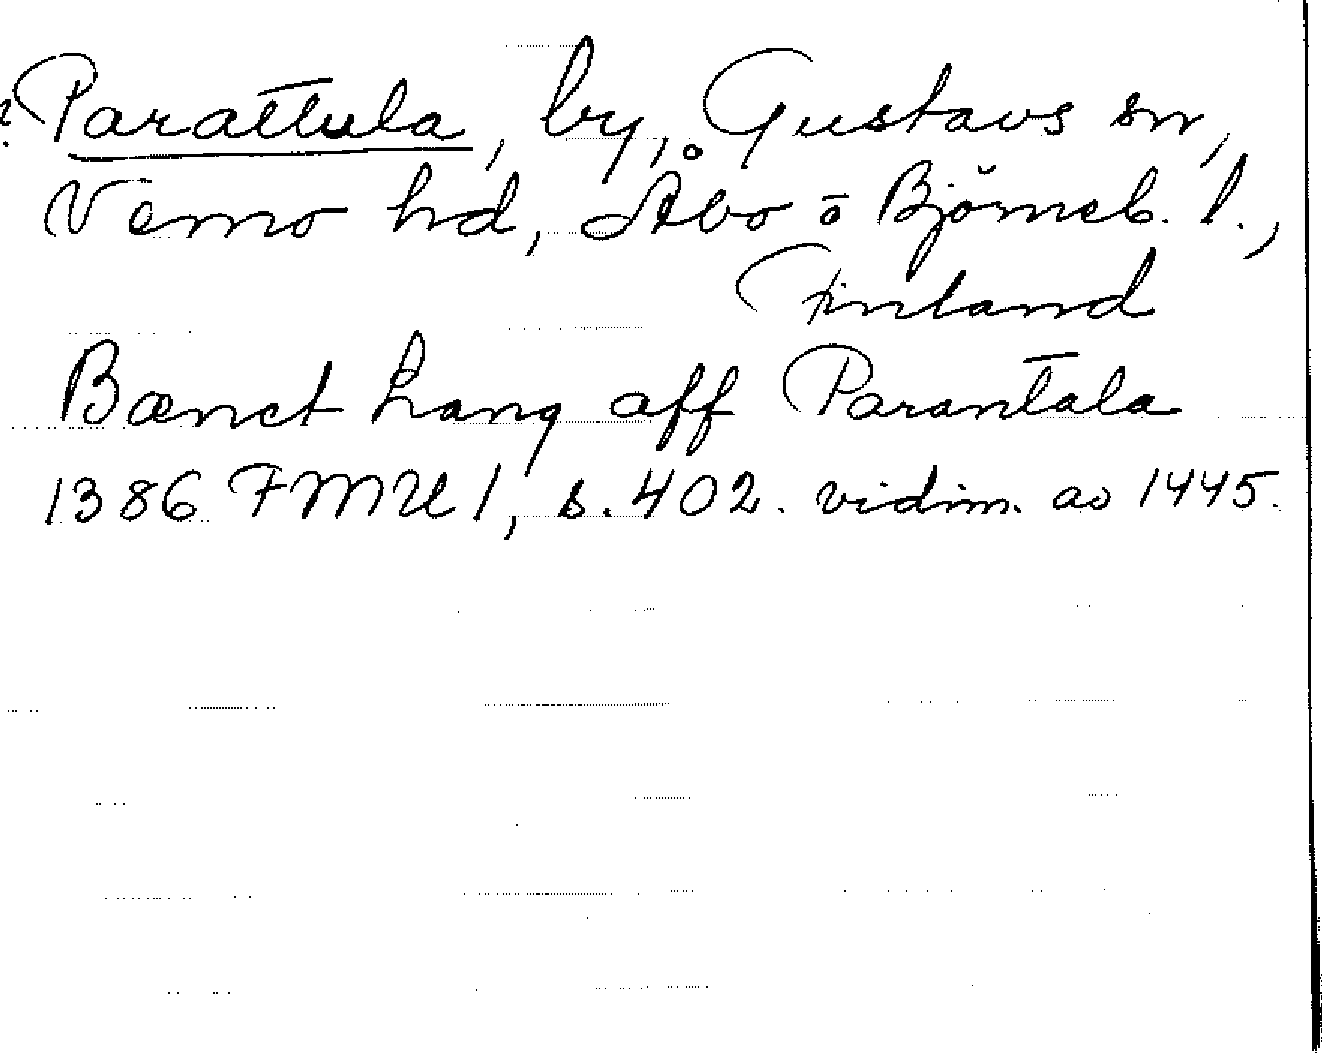 Parattula, by, Gustavs sn,
Vemo hd, Åbo o Björneb. l.,
Finland
Bænct Lang aff Parantala
1386 FMU 1, s. 402. vidim. av 1445.